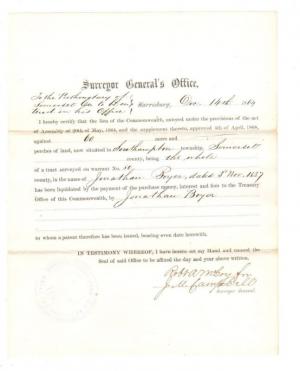 Surveyor General's Office,
To the Prothonotary of
Somerset Co to be
in his Office
Harrisburg, Dec 14th 1869
I hereby certify that the lien of the Commonwealth, entered under the provisions of the act
of Assembly of 20th of May, 1864, and the supplement thereto, approved 4th of April, 1868,
against 60 acres and
perches of land, now situated in Southampton township, Somerset
county, being the whole
of a tract surveyed on warrant No.
county, in the name of Jonathan Boyer, dated 3d Nov. 1837
has been liquidated by the payment of the purchase money, interest and fees to the Treasury
Office of this Commonwealth, by Jonathan Boyer
to whom a patent therefor has been issued, bearing even date herewith.
IN TESTIMONY WHEREOF, I have hereto set my Hand and caused the
Seal of said Office to be affixed the day and year above written.
J M Campbell
Surveyor General.